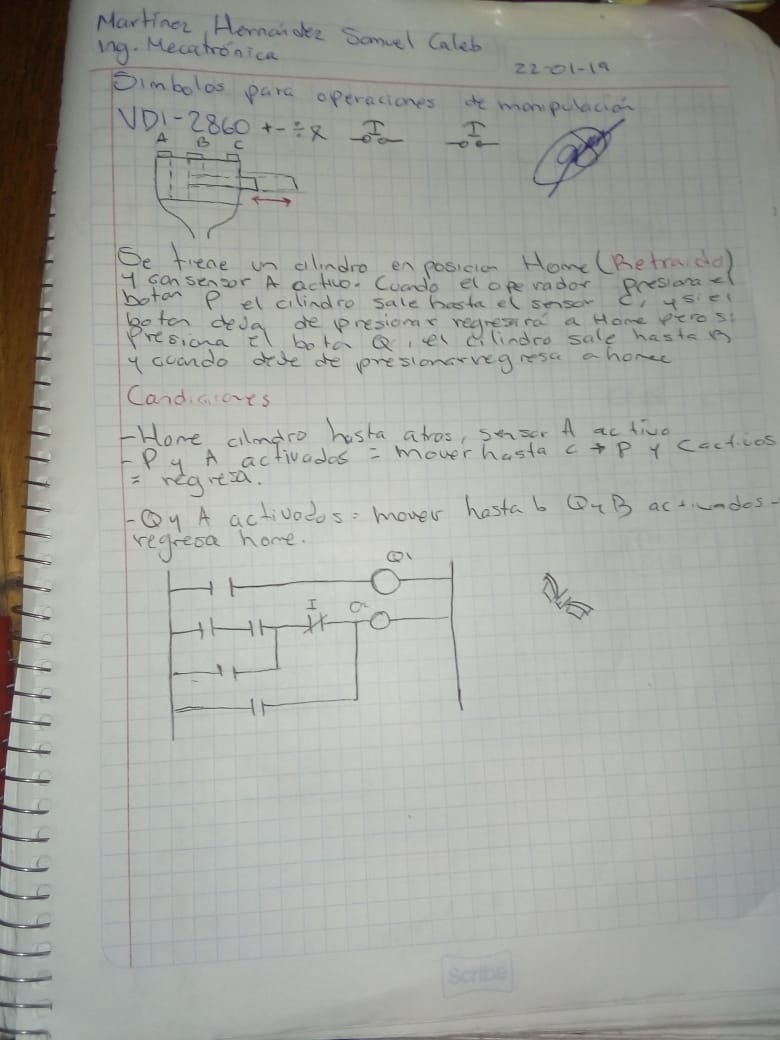 Martínez Hernández Samuel Caleb
Ing. Mecatrónica
22-01-19
Símbolos para operaciones de manipulación
VDI-2860 + - ÷ x
A B C
Se tiene un cilindro en posicion Home (Retraido)
y con sensor A activo. Cuando el operador presiona el
boton P el cilindro sale hasta el sensor C, y si el
boton deja de presionar regresará a Home pero si
Presiona el boton Q, el cilindro sale hasta B
y cuando deje de presionar regresa a home
Condiciones
-Home cilindro hasta atras, sensor A activo
-P y A activados = mover hasta C → P y C activos
= regresa.
-Q y A activados = mover hasta b Q y B activados-
regresa home.
Q1
I
Scribe